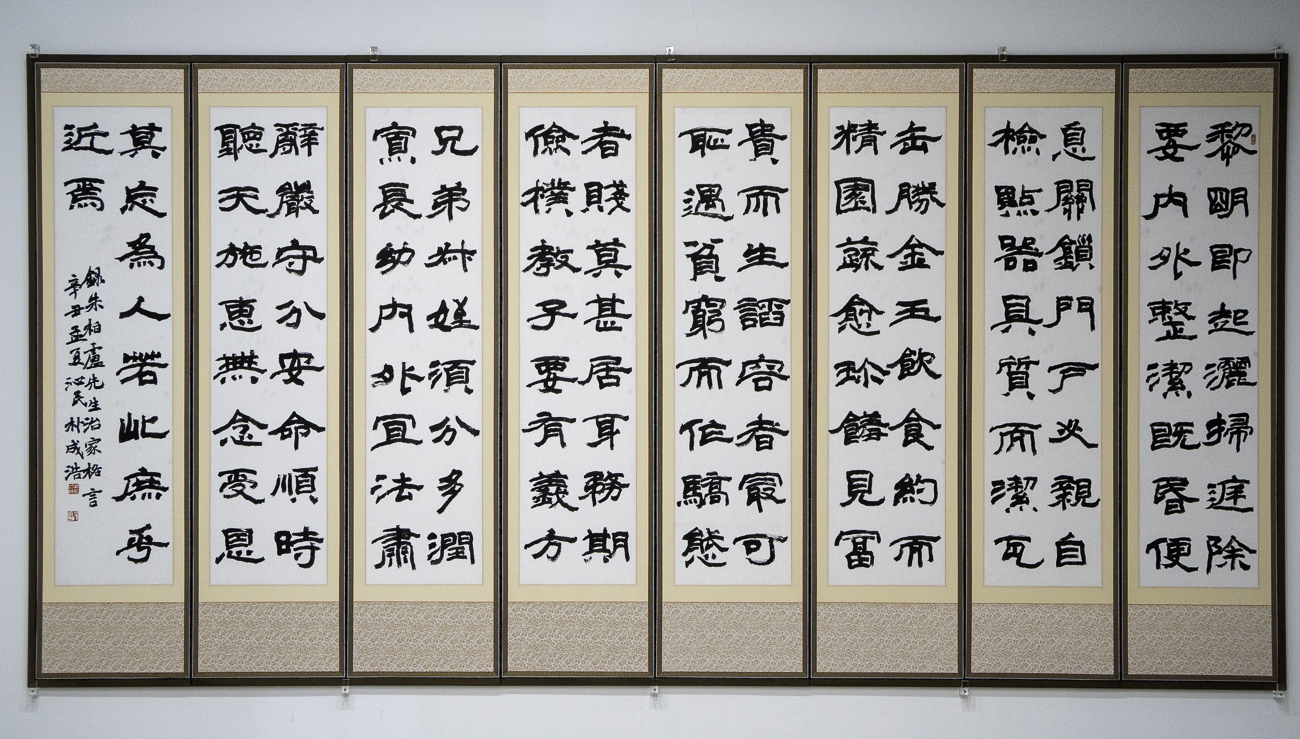 黎明即起灑掃庭除
要內外整潔既昏便
息關鎖門戶必親自
檢點器具質而潔瓦
缶勝金玉飲食約而
精園蔬愈珍饈見富
貴而生諂容者最可
恥遇貧窮而作驕態
者賤莫甚居身務期
儉樸教子要有義方
兄弟叔姪須分多潤
寡長幼內外宜法肅
辭嚴守分安命順時
聽天施惠無念受恩
莫忘為人若此庶乎
近焉
錄朱柏廬先生治家格言
辛丑孟夏沁民朴成浩